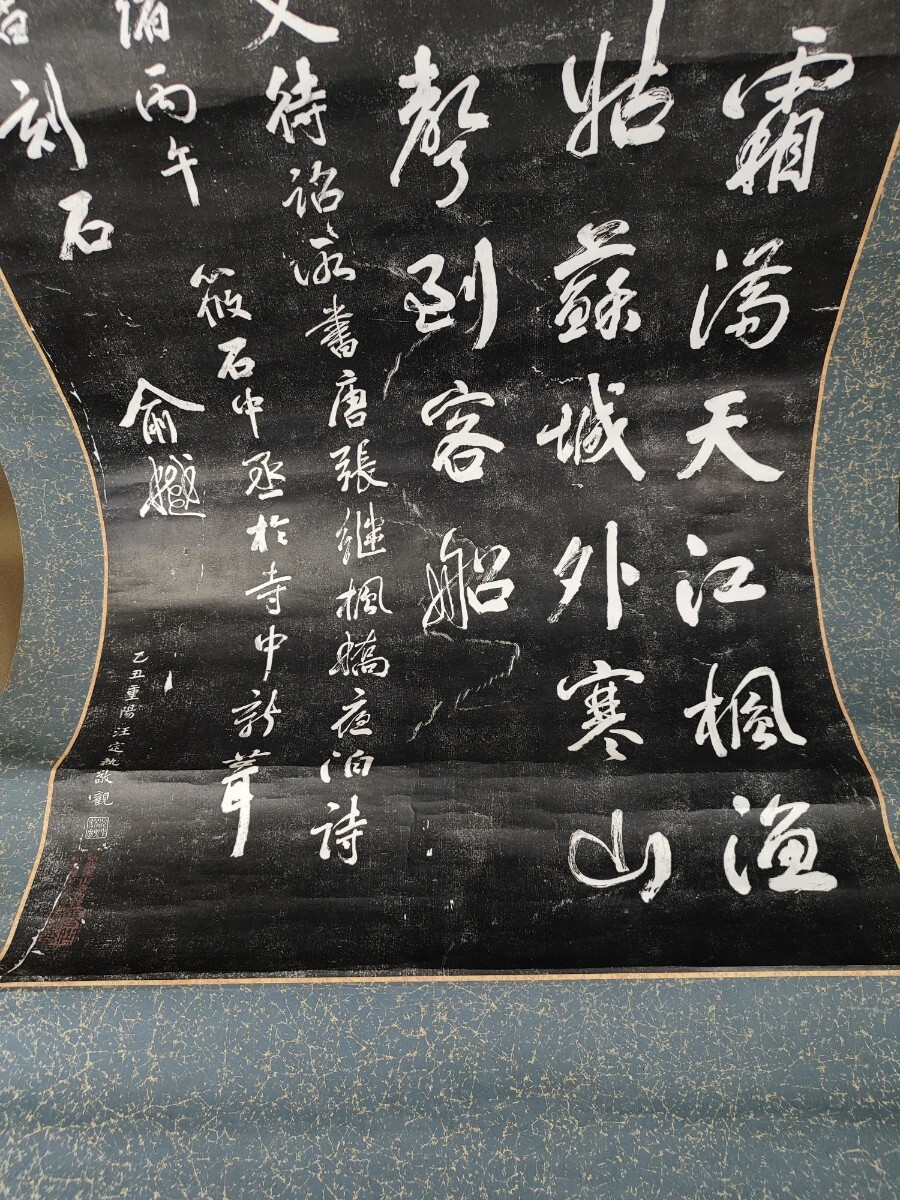 霜満天江楓漁
姑蘇城外寒山
聲到客船
文待詔所書唐張繼楓橋夜泊詩
筱石中丞於寺中新葺
丙午
俞樾
刻石
乙丑重陽汪定執敬觀